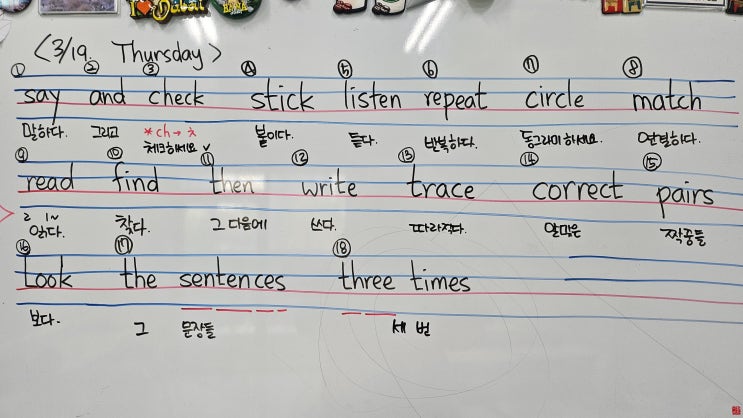 I ♥ Dubai
<3/19. Thursday>
① ② ③ ④ ⑤ ⑥ ⑦ ⑧
say and check stick listen repeat circle match
말하다. 그리고 *ch→ㅊ 체크하세요 붙이다. 듣다. 반복하다. 동그라미하세요. 연결하다.
⑨ ⑩ ⑪ ⑫ ⑬ ⑭ ⑮
read find then write trace correct pairs
ㄹ 1~
읽다. 찾다. 그 다음에 쓰다. 따라적다. 알맞은 짝꿍들
⑯ ⑰ ⑱
look the sentences three times
보다. 그 문장들 세 번